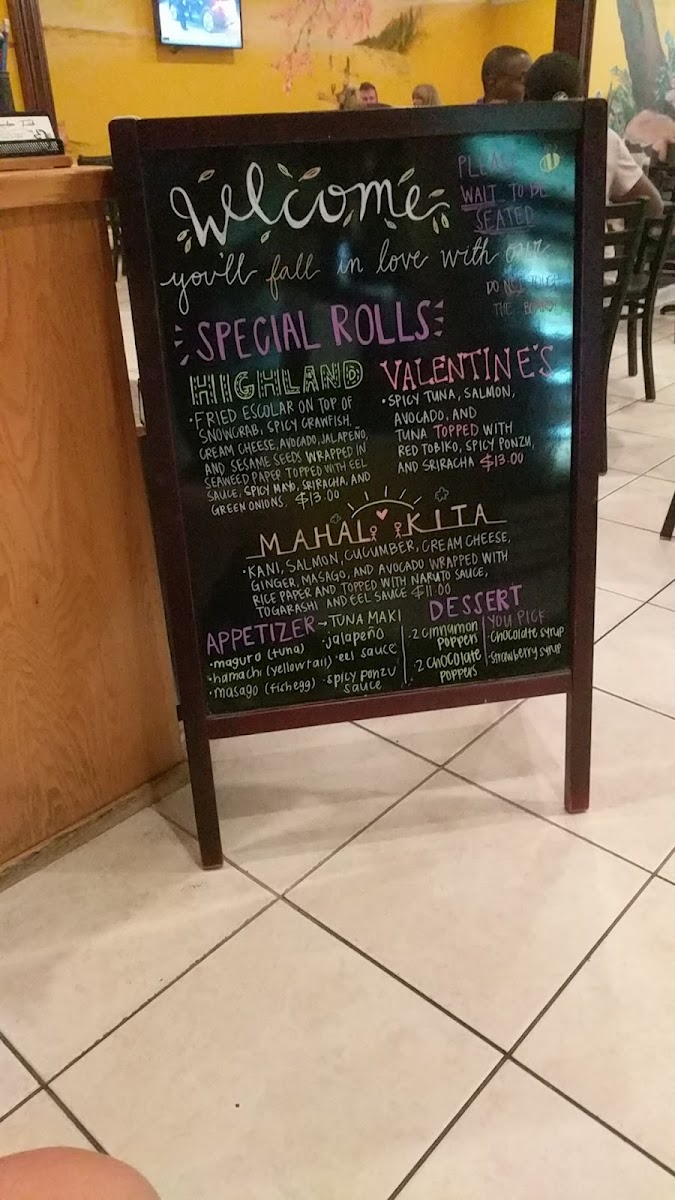 Welcome
PLEASE
WAIT TO BE
SEATED
you'll fall in love with our
DO NOT
THE BOARD
SPECIAL ROLLS
HIGHLAND
• FRIED ESCOLAR ON TOP OF
SNOWCRAB, SPICY CRAWFISH,
CREAM CHEESE, AVOCADO, JALAPEÑO,
AND SESAME SEEDS WRAPPED IN
SEAWEED PAPER TOPPED WITH EEL
SAUCE, SPICY MAYO, SRIRACHA, AND
GREEN ONIONS. $13.00
VALENTINE'S
• SPICY TUNA, SALMON,
AVOCADO, AND
TUNA TOPPED WITH
RED TOBIKO, SPICY PONZU,
AND SRIRACHA $13.00
MAHAL KITA
• KANI, SALMON, CUCUMBER, CREAM CHEESE,
GINGER, MASAGO, AND AVOCADO WRAPPED WITH
RICE PAPER AND TOPPED WITH NARUTO SAUCE,
TOGARASHI AND EEL SAUCE $11.00
APPETIZER → TUNA MAKI
• maguro (tuna) • jalapeño
• hamachi (yellowtail) • eel sauce
• masago (fish egg) • spicy ponzu
sauce
DESSERT
• 2 cinnamon
poppers
• 2 chocolate
poppers
YOU PICK
• chocolate syrup
• strawberry syrup